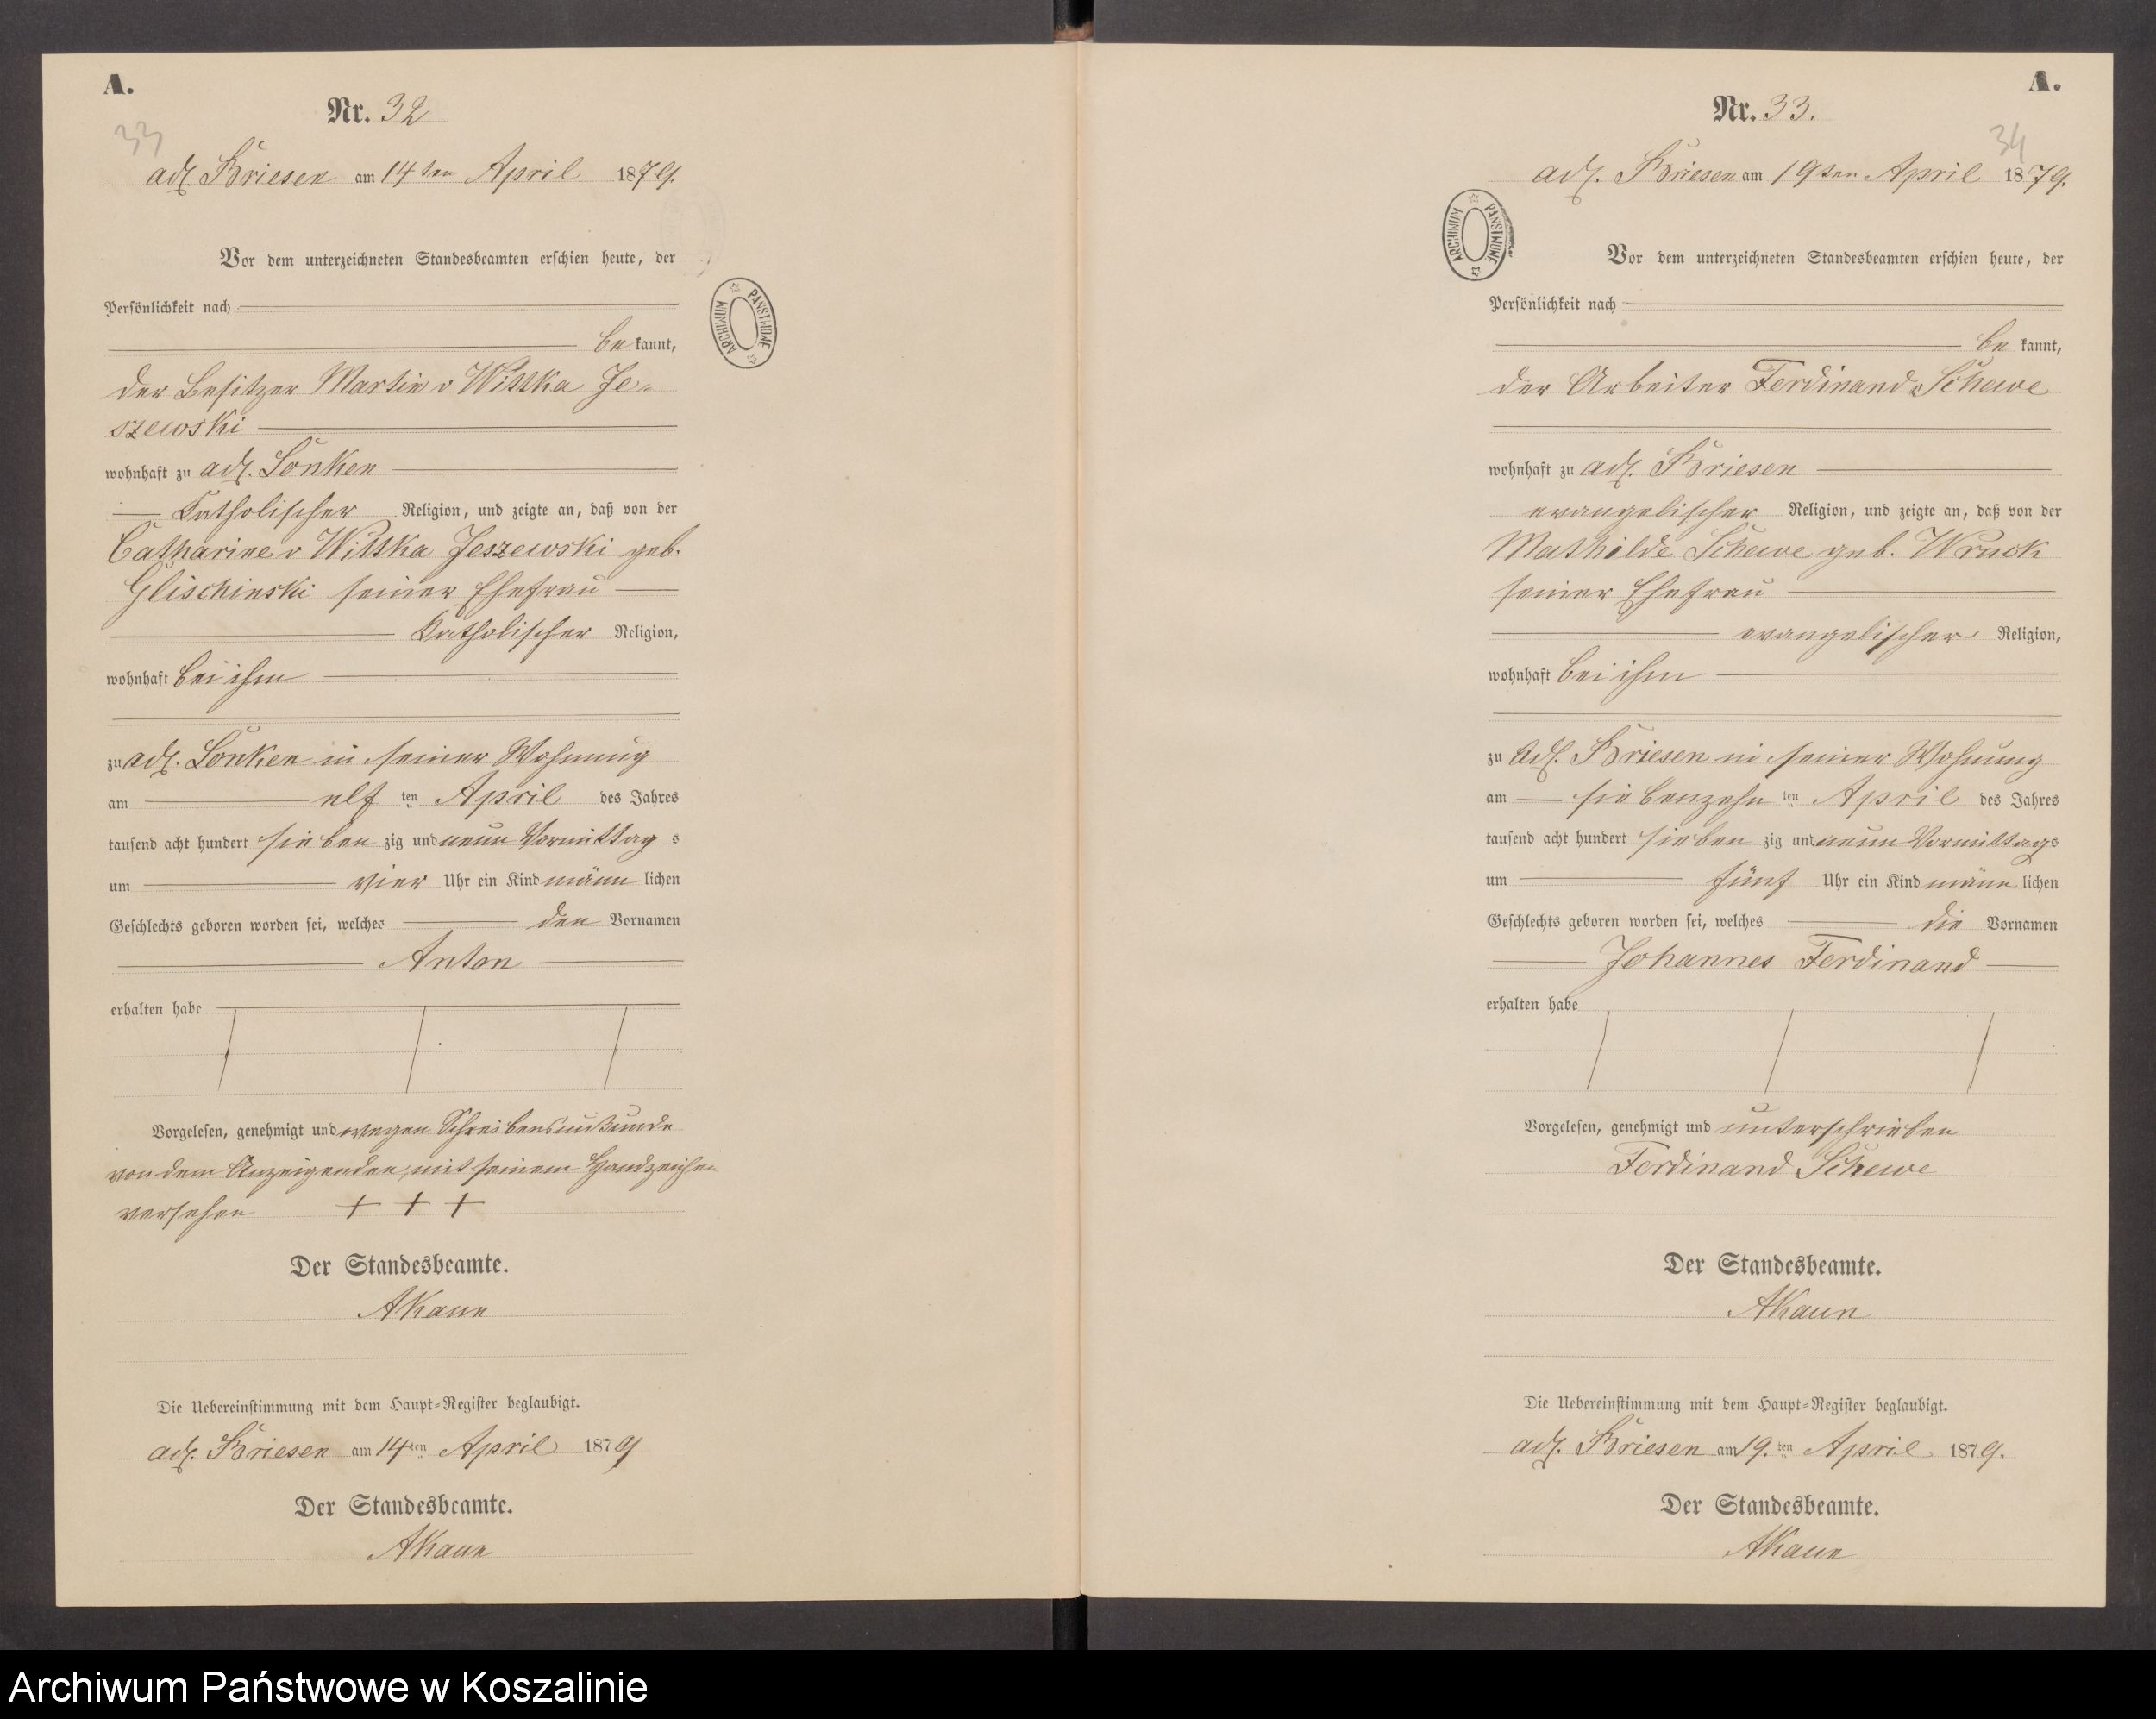 A.
Nr. 32
33
adl. Briesen am 14ten April 1879.
Vor dem unterzeichneten Standesbeamten erschien heute, der
Persönlichkeit nach
be kannt,
der Besitzer Martin v Wittka Je-
szewski
wohnhaft zu adl. Lonken
Katholischer Religion, und zeigte an, daß von der
Catharine v Wittka Jeszewski geb.
Glischinski seiner Ehefrau
Katholischer Religion,
wohnhaft bei ihm
zu adl. Lonken in seiner Wohnung
am elf ten April des Jahres
tausend acht hundert sieben zig und neun Vormittag s
um vier Uhr ein Kind männ lichen
Geschlechts geboren worden sei, welches den Vornamen
Anton
erhalten habe
Vorgelesen, genehmigt und wegen Schreibensunkunde
von dem Anzeigenden mit seinem Handzeichen
versehen + + +
Der Standesbeamte.
AKaun
Die Uebereinstimmung mit dem Haupt-Register beglaubigt.
adl. Briesen am 14ten April 1879
Der Standesbeamte.
AKaun
ARCHIWUM PAŃSTWOWE
A.
Nr. 33.
34
adl. Briesen am 19ten April 1879.
ARCHIWUM PAŃSTWOWE
Vor dem unterzeichneten Standesbeamten erschien heute, der
Persönlichkeit nach
be kannt,
der Arbeiter Ferdinand Schewe
wohnhaft zu adl. Briesen
evangelischer Religion, und zeigte an, daß von der
Mathilde Schewe geb. Wruck
seiner Ehefrau
evangelischer Religion,
wohnhaft bei ihm
zu Adl. Briesen in seiner Wohnung
am siebenzehn ten April des Jahres
tausend acht hundert sieben zig und neun Vormittags
um fünf Uhr ein Kind männ lichen
Geschlechts geboren worden sei, welches die Vornamen
Johannes Ferdinand
erhalten habe
Vorgelesen, genehmigt und unterschrieben
Ferdinand Schewe
Der Standesbeamte.
AKaun
Die Uebereinstimmung mit dem Haupt-Register beglaubigt.
adl. Briesen am 19. ten April 1879.
Der Standesbeamte.
AKaun
Archiwum Państwowe w Koszalinie